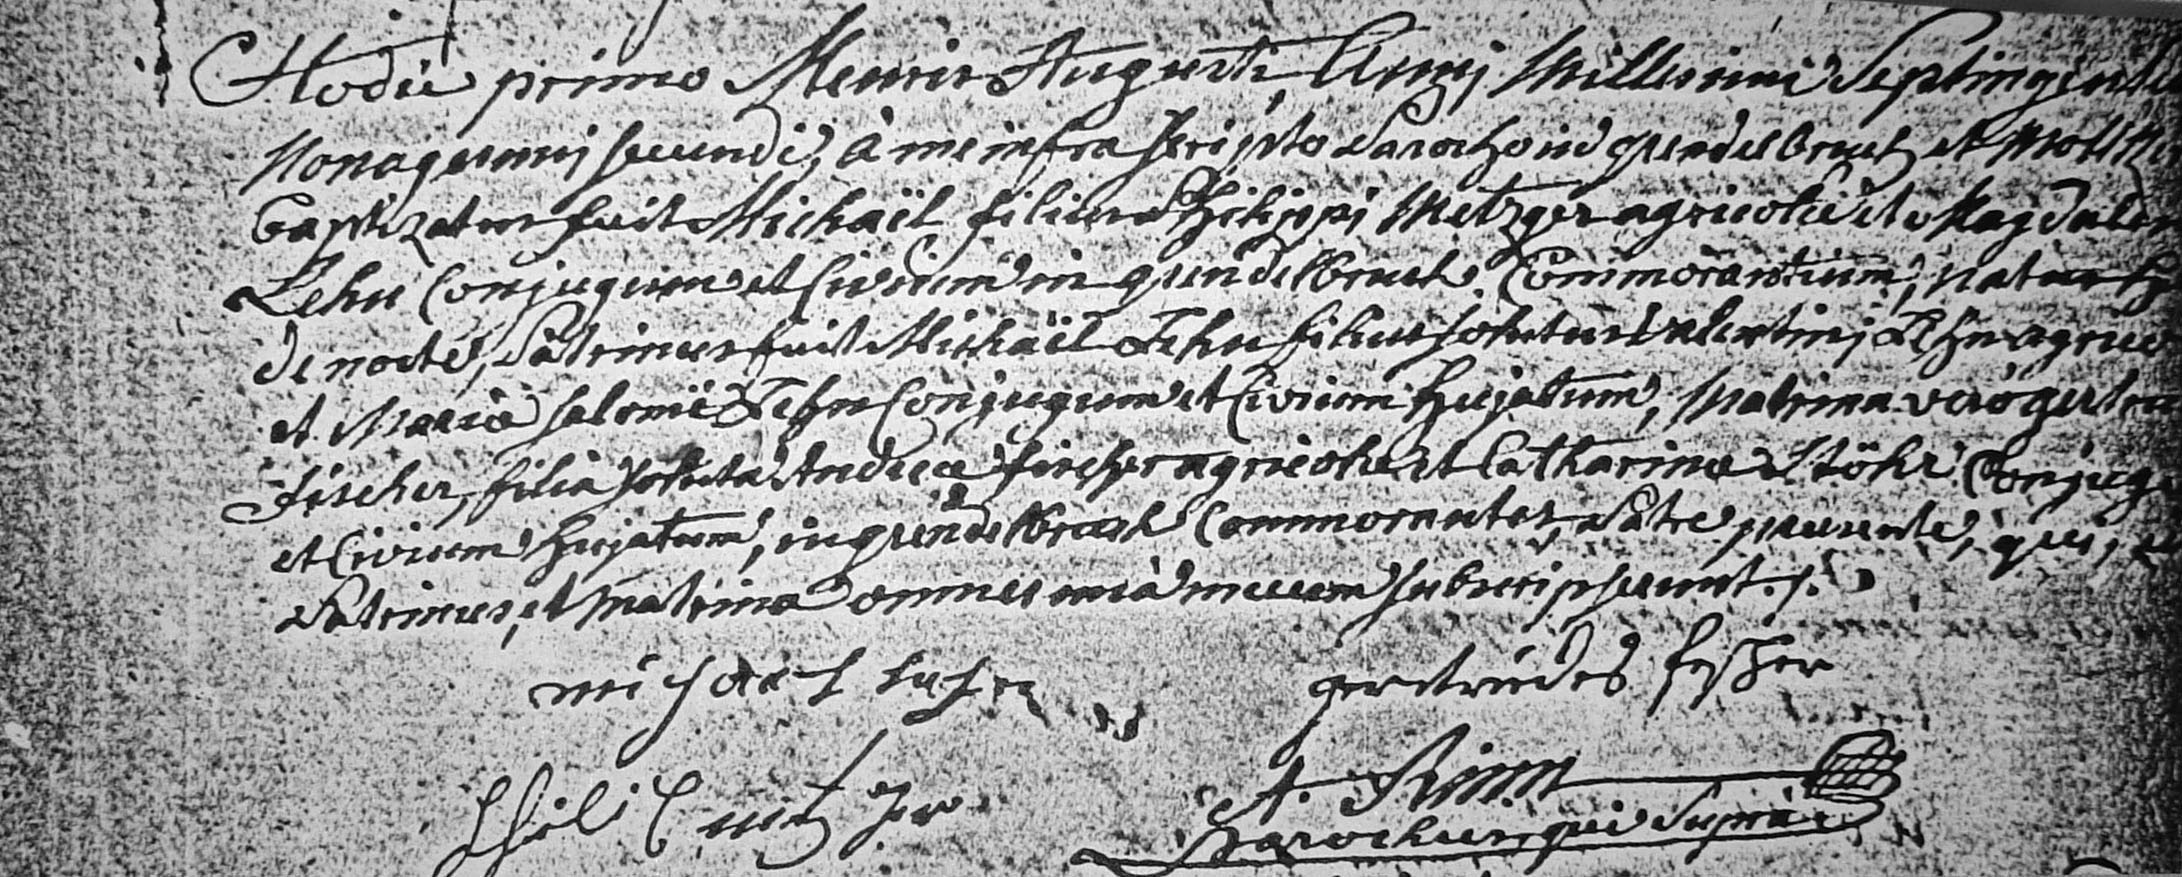 Hodie primo Mensis Augusti, Anni Millesimi Septingente
Nonagesimi secundi, à me infra scripto Parocho in grendelbruch et Moll
baptizatus fuit Michaël filius Philippi Metzger agricolae et Magdalen
Lehn Conjugum et Civium in grendelbruch Commorantium, natus
de nocte, Patrinus fuit Michaël Lehn filius solutus Valentini Lehn agric
et Maria Salome Lehn Conjugum et Civium hujatum, Matrina vero gertru
Fischer, filia soluta Andreae fischer agricolae et Catharina Stöhr Conjug
et Civium hujatum, in grendelbruch Commorantes, Patre praesente, qui,
Patrinus, et Matrina omnes una mecum subscripserunt ./.
michael
gertrudes fischer
A. Rinn
Philip metzger
Parochus qui Supra